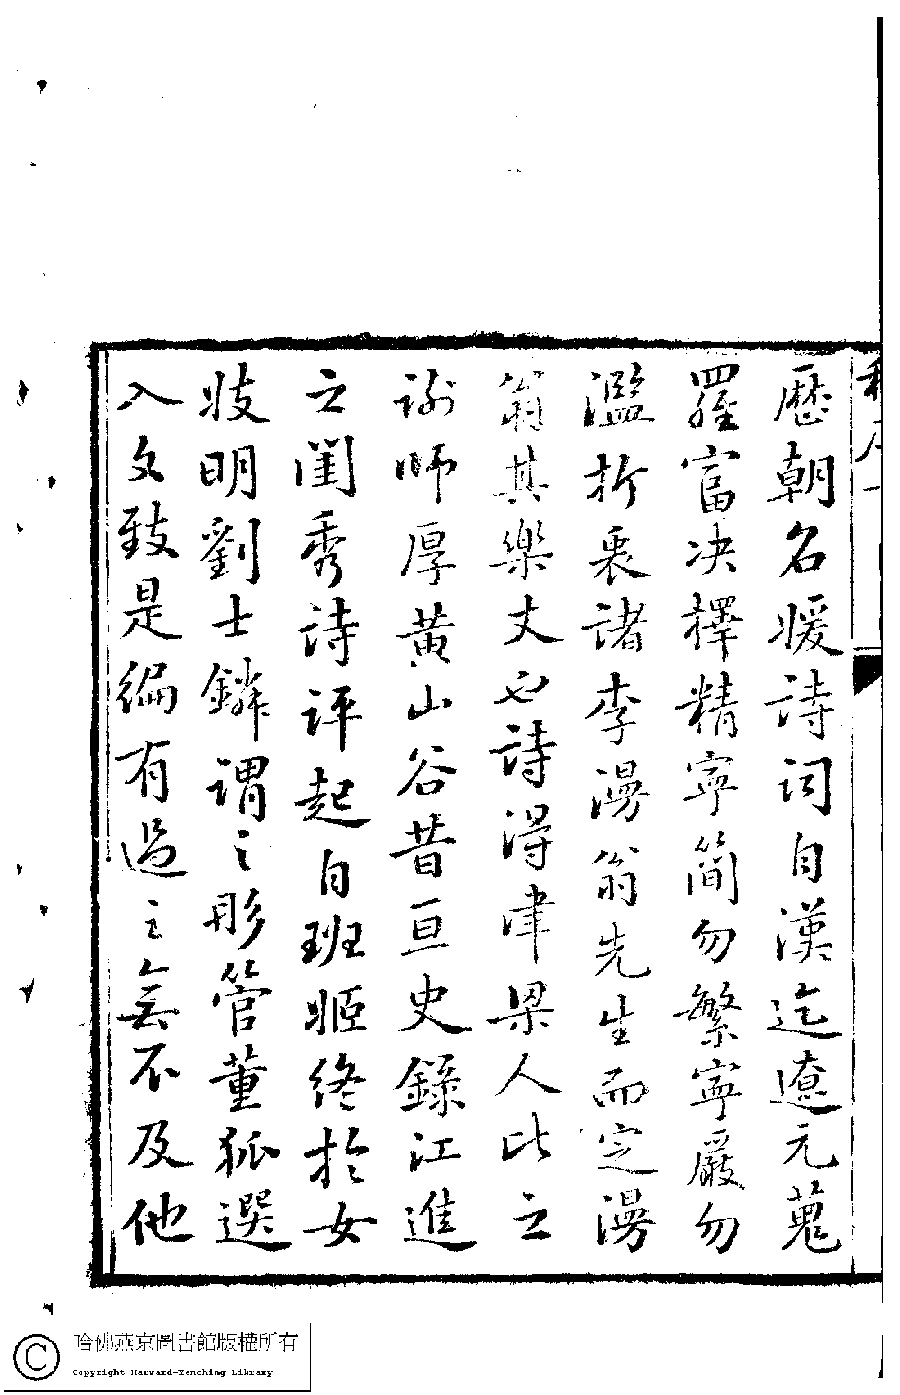 歷朝名媛詩詞自漢迄遼元蒐
羅富决擇精寧簡勿繁寧嚴勿
濫折衷諸李漫翁先生而定漫
翁其樂丈也詩得津梁人比之
謝師厚黃山谷昔亘史錄江進
之閨秀詩評起自班姬終於女
妓明劉士鏻謂之彤管董狐選
入文致是編有過之無不及他
哈佛燕京圖書館版權所有
Copyright Harvard-Yenching Library